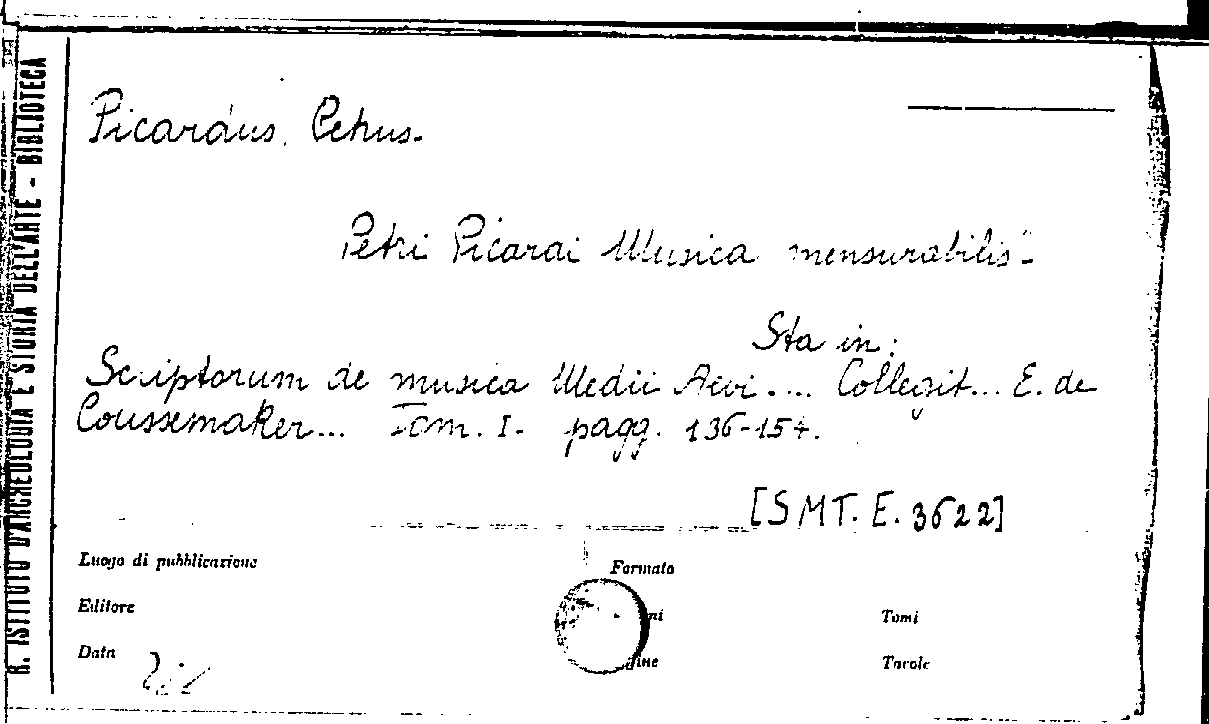 R. ISTITUTO D'ARCHEOLOGIA E STORIA DELL'ARTE - BIBLIOTECA
Picardus, Petrus.
Petri Picardi Musica mensurabilis.-
Sta in:
Scriptorum de musica Medii Aevi.... Collegit... E. de
Coussemaker... Tom. I. pagg. 136-154.
[SMT. E. 3622]
Luogo di pubblicazione
Formato
Editore
ni
Tomi
Data
gine
Tavole